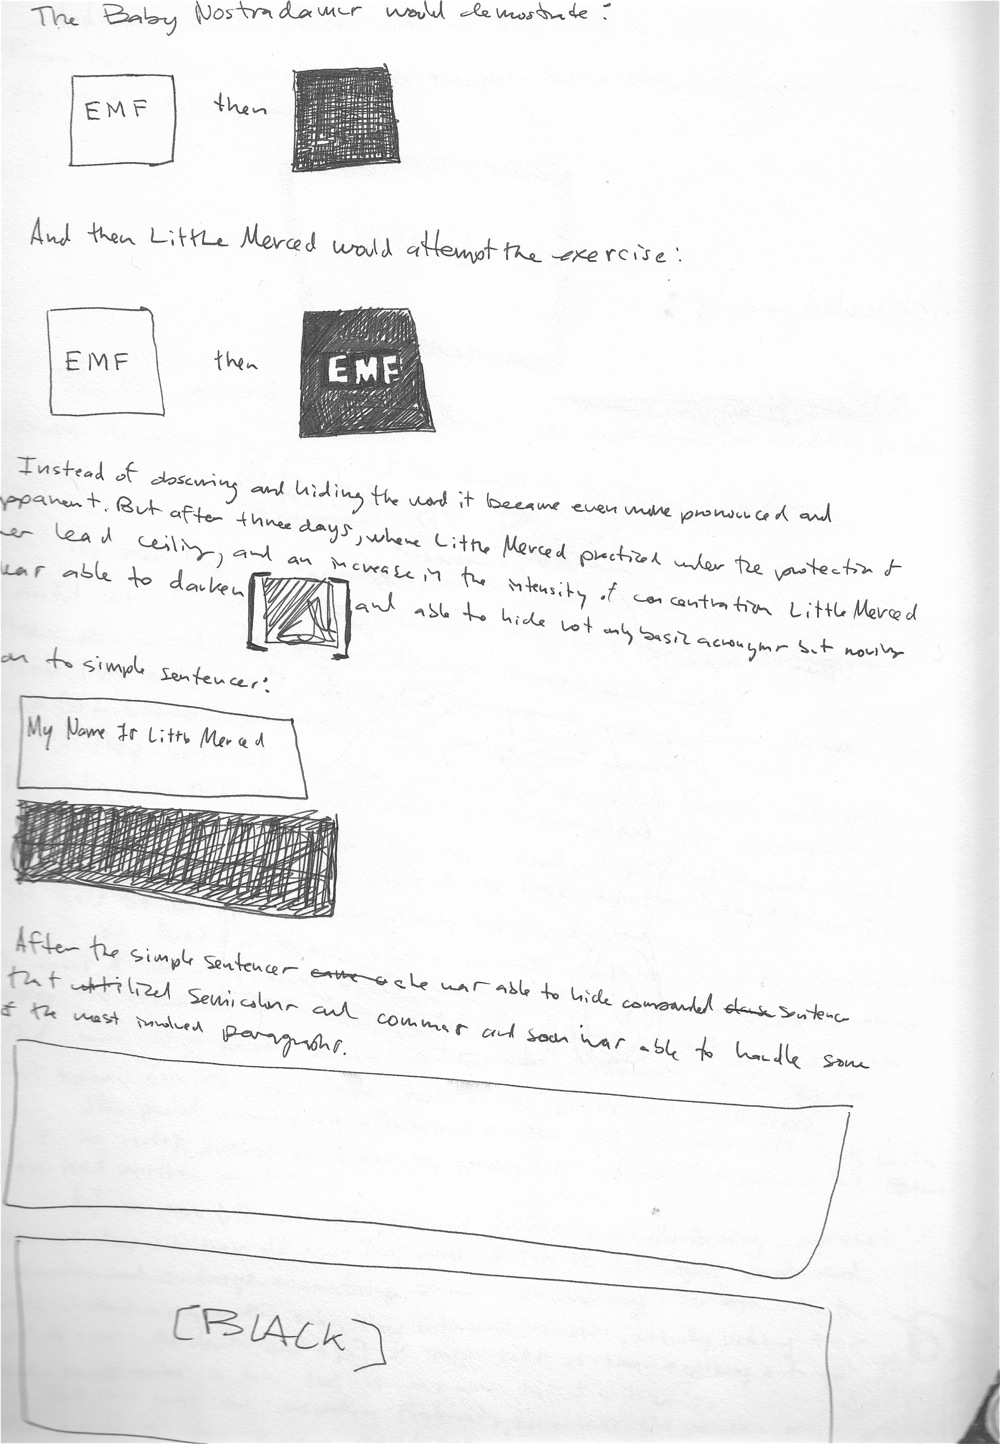 The Baby Nostradamus would demostrate:
EMF then
And then Little Merced would attempt the exercise:
EMF then EMF
Instead of obscuring and hiding the word it became even more pronounced and
apparent. But after three days, where Little Merced practiced under the protection of
her lead ceiling, and an increase in the intensity of concentration Little Merced
was able to darken [ ] and able to hide not only basic acronyms but moving
on to simple sentences:
My Name Is Little Merced
After the simple sentences came she was able to hide compounded clause sentence
that utilized semicolons and commas and soon was able to handle some
of the most involved paragraphs.
[BLACK]